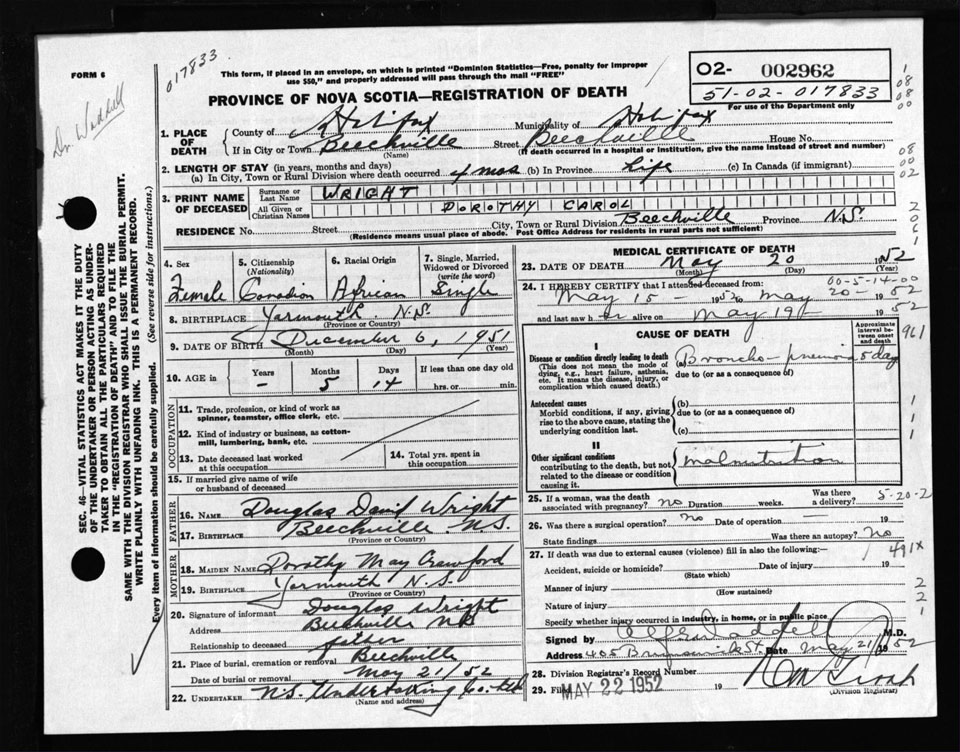 FORM 6
017833
Dr Waddell
This form, if placed in an envelope, on which is printed "Dominion Statistics—Free, penalty for improper
use $50," and properly addressed will pass through the mail "FREE"
PROVINCE OF NOVA SCOTIA—REGISTRATION OF DEATH
O2- 002962
51-02-017833
For use of the Department only
1. PLACE OF DEATH
County of Halifax Municipality of Halifax
If in City or Town Beechville Street Beechville House No.
(Name) (If death occurred in a hospital or institution, give the name instead of street and number)
2. LENGTH OF STAY (in years, months and days)
(a) In City, Town or Rural Division where death occurred 4 mos (b) In Province Life (c) In Canada (if immigrant)
3. PRINT NAME OF DECEASED
Surname or Last Name WRIGHT
All Given or Christian Names DOROTHY CAROL
RESIDENCE No. Street City, Town or Rural Division Beechville Province N.S.
(Residence means usual place of abode. Post Office Address for residents in rural parts not sufficient)
SEC. 46—VITAL STATISTICS ACT MAKES IT THE DUTY
OF THE UNDERTAKER OR PERSON ACTING AS UNDER-
TAKER TO OBTAIN ALL THE PARTICULARS REQUIRED
IN THE "REGISTRATION OF DEATH" AND TO FILE THE
SAME WITH THE DIVISION REGISTRAR WHO SHALL ISSUE THE BURIAL PERMIT.
WRITE PLAINLY WITH UNFADING INK. THIS IS A PERMANENT RECORD.
Every item of information should be carefully supplied. (See reverse side for instructions.)
4. Sex
Female
5. Citizenship
(Nationality)
Canadian
6. Racial Origin
African
7. Single, Married,
Widowed or Divorced
(write the word)
Single
8. BIRTHPLACE Yarmouth N.S.
(Province or Country)
9. DATE OF BIRTH December 6, 1951
(Month) (Day) (Year)
10. AGE in
Years Months Days If less than one day old
– 5 14 hrs. or min.
OCCUPATION
11. Trade, profession, or kind of work as
spinner, teamster, office clerk, etc.
12. Kind of industry or business, as cotton-
mill, lumbering, bank, etc.
13. Date deceased last worked
at this occupation
14. Total yrs. spent in
this occupation
15. If married give name of wife
or husband of deceased
FATHER
16. Name Douglas David Wright
17. BIRTHPLACE Beechville N.S.
(Province or Country)
MOTHER
18. MAIDEN NAME Dorothy May Crawford
19. BIRTHPLACE Yarmouth N.S.
(Province or Country)
20. Signature of informant Douglas Wright
Address Beechville N.S.
Relationship to deceased father
21. Place of burial, cremation or removal Beechville
Date of burial or removal May 21/52
22. UNDERTAKER N.S. Undertaking Co. Ltd
(Name and address)
MEDICAL CERTIFICATE OF DEATH
23. DATE OF DEATH May 20 1952
(Month) (Day) (Year)
60-5-14-00
24. I HEREBY CERTIFY that I attended deceased from:
May 15 - 1952 to May 20 - 1952
and last saw h er alive on May 19 1952
CAUSE OF DEATH
Approximate
interval be-
tween onset
and death
961
I
Disease or condition directly leading to death
(This does not mean the mode of
dying, e.g., heart failure, asthenia,
etc. It means the disease, injury, or
complication which caused death.)
(a) Broncho-pneumonia 5 day
due to (or as a consequence of)
Antecedent causes
Morbid conditions, if any, giving
rise to the above cause, stating the
underlying condition last.
(b)
due to (or as a consequence of)
(c)
II
Other significant conditions
contributing to the death, but not
related to the disease or condition
causing it.
malnutrition
25. If a woman, was the death
associated with pregnancy? no Duration weeks. Was there
a delivery?
5-20-2
26. Was there a surgical operation? no Date of operation 19
State findings Was there an autopsy? No
27. If death was due to external causes (violence) fill in also the following:—
491X
Accident, suicide or homicide? Date of injury 19
(State which)
Manner of injury
(How sustained)
Nature of injury
Specify whether injury occurred in industry, in home, or in public place
Signed by Waddell M.D.
Address 405 Brunswick St Date May 21/1952
28. Division Registrar's Record Number
29. Filed MAY 22 1952 19
(Division Registrar)